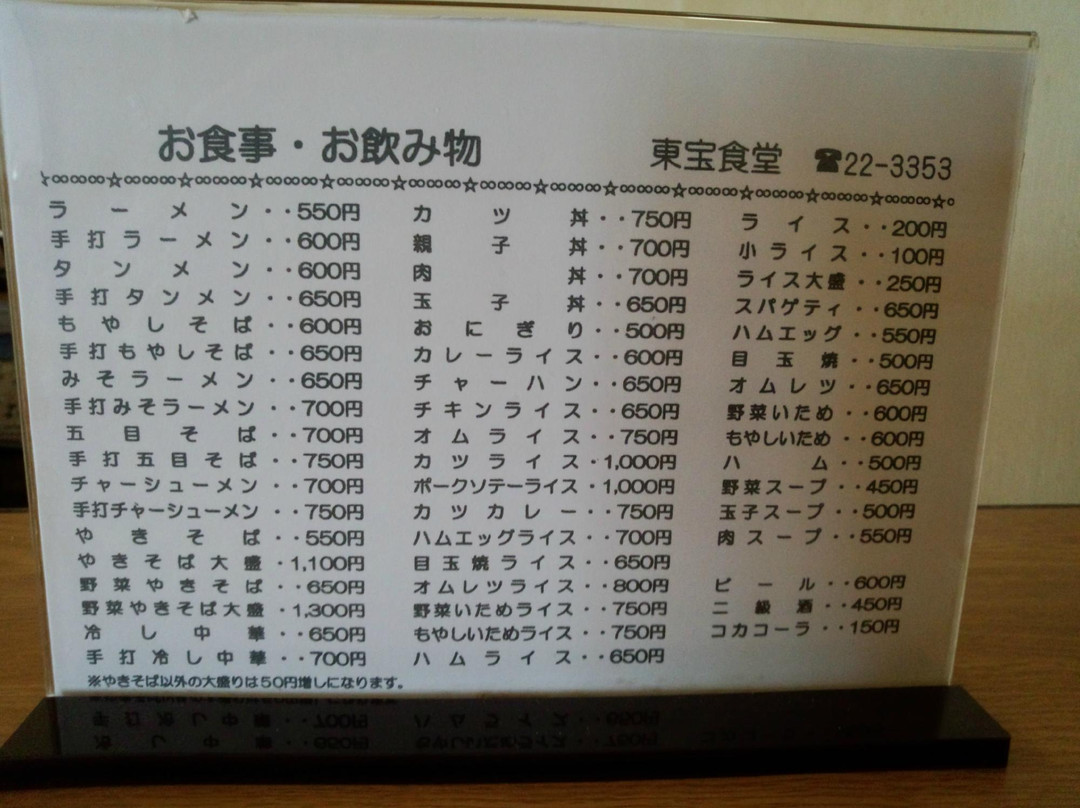 お食事・お飲み物
東宝食堂 ☎22-3353
ラーメン・・550円
手打ラーメン・・600円
タンメン・・600円
手打タンメン・・650円
もやしそば・・600円
手打もやしそば・・650円
みそラーメン・・650円
手打みそラーメン・・700円
五目そば・・700円
手打五目そば・・750円
チャーシューメン・・700円
手打チャーシューメン・・750円
やきそば・・550円
やきそば大盛・1,100円
野菜やきそば・・650円
野菜やきそば大盛・1,300円
冷し中華・・650円
手打冷し中華・・700円
※やきそば以外の大盛りは50円増しになります。
カツ丼・・750円
親子丼・・700円
肉丼・・700円
玉子丼・・650円
おにぎり・・500円
カレーライス・・600円
チャーハン・・650円
チキンライス・・650円
オムライス・・750円
カツライス・1,000円
ポークソテーライス・1,000円
カツカレー・・750円
ハムエッグライス・・700円
目玉焼ライス・・650円
オムレツライス・・800円
野菜いためライス・・750円
もやしいためライス・・750円
ハムライス・・650円
ライス・・200円
小ライス・・100円
ライス大盛・・250円
スパゲティ・・650円
ハムエッグ・・550円
目玉焼・・500円
オムレツ・・650円
野菜いため・・600円
もやしいため・・600円
ハム・・500円
野菜スープ・・450円
玉子スープ・・500円
肉スープ・・550円
ビール・・600円
二級酒・・450円
コカコーラ・・150円